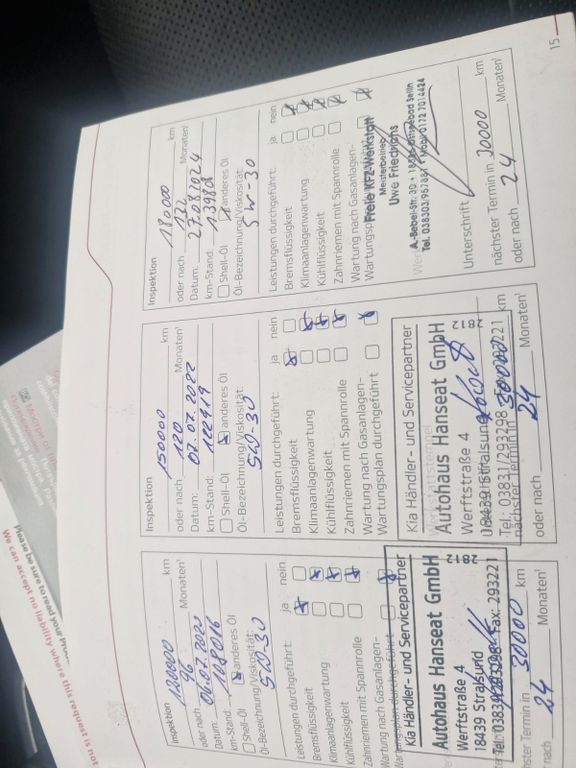 Inspektion
120000 km
oder nach 96 Monaten¹
Datum: 01.07.2020
km-Stand:
Shell-Öl anderes Öl
Öl-Bezeichnung/Viskosität:
5W-30
Leistungen durchgeführt: ja nein
Bremsflüssigkeit
Klimaanlagenwartung
Kühlflüssigkeit
Zahnriemen mit Spannrolle
Wartung nach Gasanlagen-
Wartungsplan durchgeführt
Kia Händler- und Servicepartner
Autohaus Hanseat GmbH
Werftstraße 4
18439 Stralsund
Fax: 293221
2812
nächster Termin in 30000 km
24 Monaten¹
Inspektion
150000 km
oder nach 120 Monaten¹
Datum: 07.07.2022
km-Stand: 102419
Shell-Öl anderes Öl
Öl-Bezeichnung/Viskosität:
5W-30
Leistungen durchgeführt: ja nein
Bremsflüssigkeit
Klimaanlagenwartung
Kühlflüssigkeit
Zahnriemen mit Spannrolle
Wartung nach Gasanlagen-
Wartungsplan durchgeführt
Kia Händler- und Servicepartner
Autohaus Hanseat GmbH
Werftstraße 4
18439 Stralsund
Tel. 03831/293298
2812
nächster Termin in 30000 km
oder nach 24 Monaten¹
Inspektion
180000 km
oder nach 122 Monaten¹
Datum: 27.08.2024
km-Stand: 139808
Shell-Öl anderes Öl
Öl-Bezeichnung/Viskosität:
5W-30
Leistungen durchgeführt: ja nein
Bremsflüssigkeit
Klimaanlagenwartung
Kühlflüssigkeit
Zahnriemen mit Spannrolle
Wartung nach Gasanlagen-
Wartungsplan
Freie KFZ-Werkstatt
Meisterbetrieb
Uwe Friedrichs
A.-Bebel-Str. 30 • 18586 Ostseebad Sellin
Unterschrift
nächster Termin in 20000 km
oder nach 24 Monaten¹
15